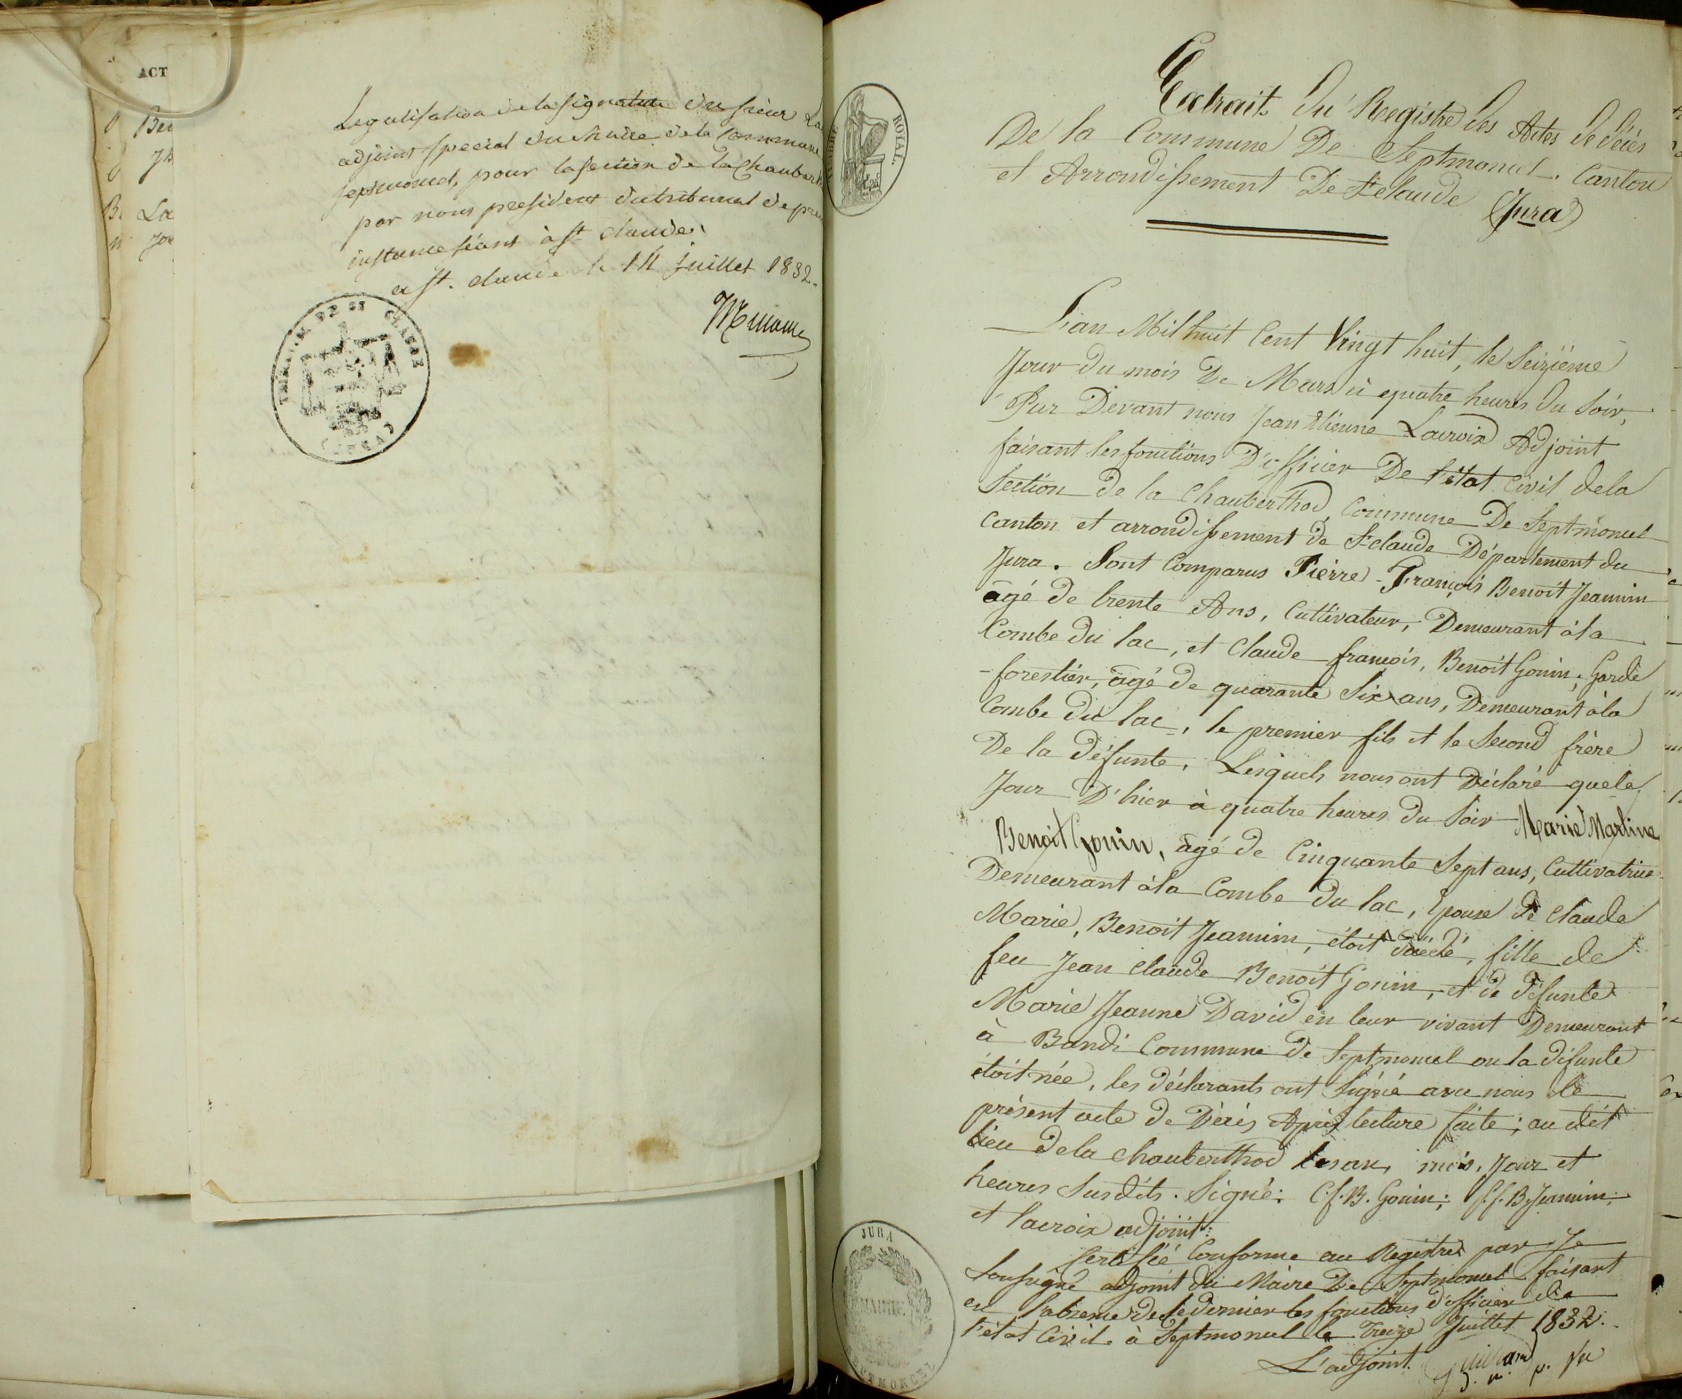 ACT
Ben
Legalisation de la signature du sieur La
adjoint special du Maire de la Commune
septmoncel, pour la section de la Chaubert
par nous president du tribunal de pre
instance séant à St. claude,
a St. claude le 14 juillet 1832.
TRIBUNAL DE ST CLAUDE
(JURA)
TIMBRE ROYAL.
Extrait du Registre des Actes de décès
De la Commune De Septmoncel. Canton
et Arrondissement De St Claude (Jura)
L'an Mil huit Cent Vingt huit, le Seizième
Jour du mois De Mars à quatre heures du Soir,
Par Devant nous Jean Etienne Lacroix Adjoint
faisant les fonctions D'officier De l'état Civil dela
Section de la Chauberthod, Commune De Septmoncel
Canton et arrondissement de St claude Département du
Jura. Sont Comparus Pierre-François Benoit Jeannin
âgé de trente Ans, Cultivateur, Demeurant à la
Combe du lac, et Claude françois, Benoit Gonin, Garde
-forestier, âgé de quarante Six ans, Demeurant à la
Combe du lac, le premier fils et le Second frère
De la défunte, Lesquels nous ont Déclaré que le
Jour D'hier à quatre heures du Soir Marie Martine
Benoit Gonin, âgé de Cinquante Sept ans, Cultivatrice
Demeurant à la Combe du lac, Epouse de Claude
Marie, Benoit Jeannin, étoit Décédé, fille de
feu Jean Claude Benoit Gonin, et de défunte
Marie Jeanne David en leur vivant Demeurant
à Bandi Commune de Septmoncel ou la défunte
étoit née, les déclarants ont Signé avec nous le
présent acte de Décès Après lecture faite; au dit
lieu dela Chauberthod les an, mois, Jour et
heures Susdits. Signé: C.f.B. Gonin; P.f.B. Jeannin;
et lacroix adjoint:
Certifié Conforme au Registre par Je
Soussigné adjoint du Maire De Septmoncel faisant
en l'absence de ce dernier les fonctions d'officier de
l'état Civil. à Septmoncel le Treize Juillet 1832.
L'adjoint.
JURA
MAIRIE
SEPTMONCEL